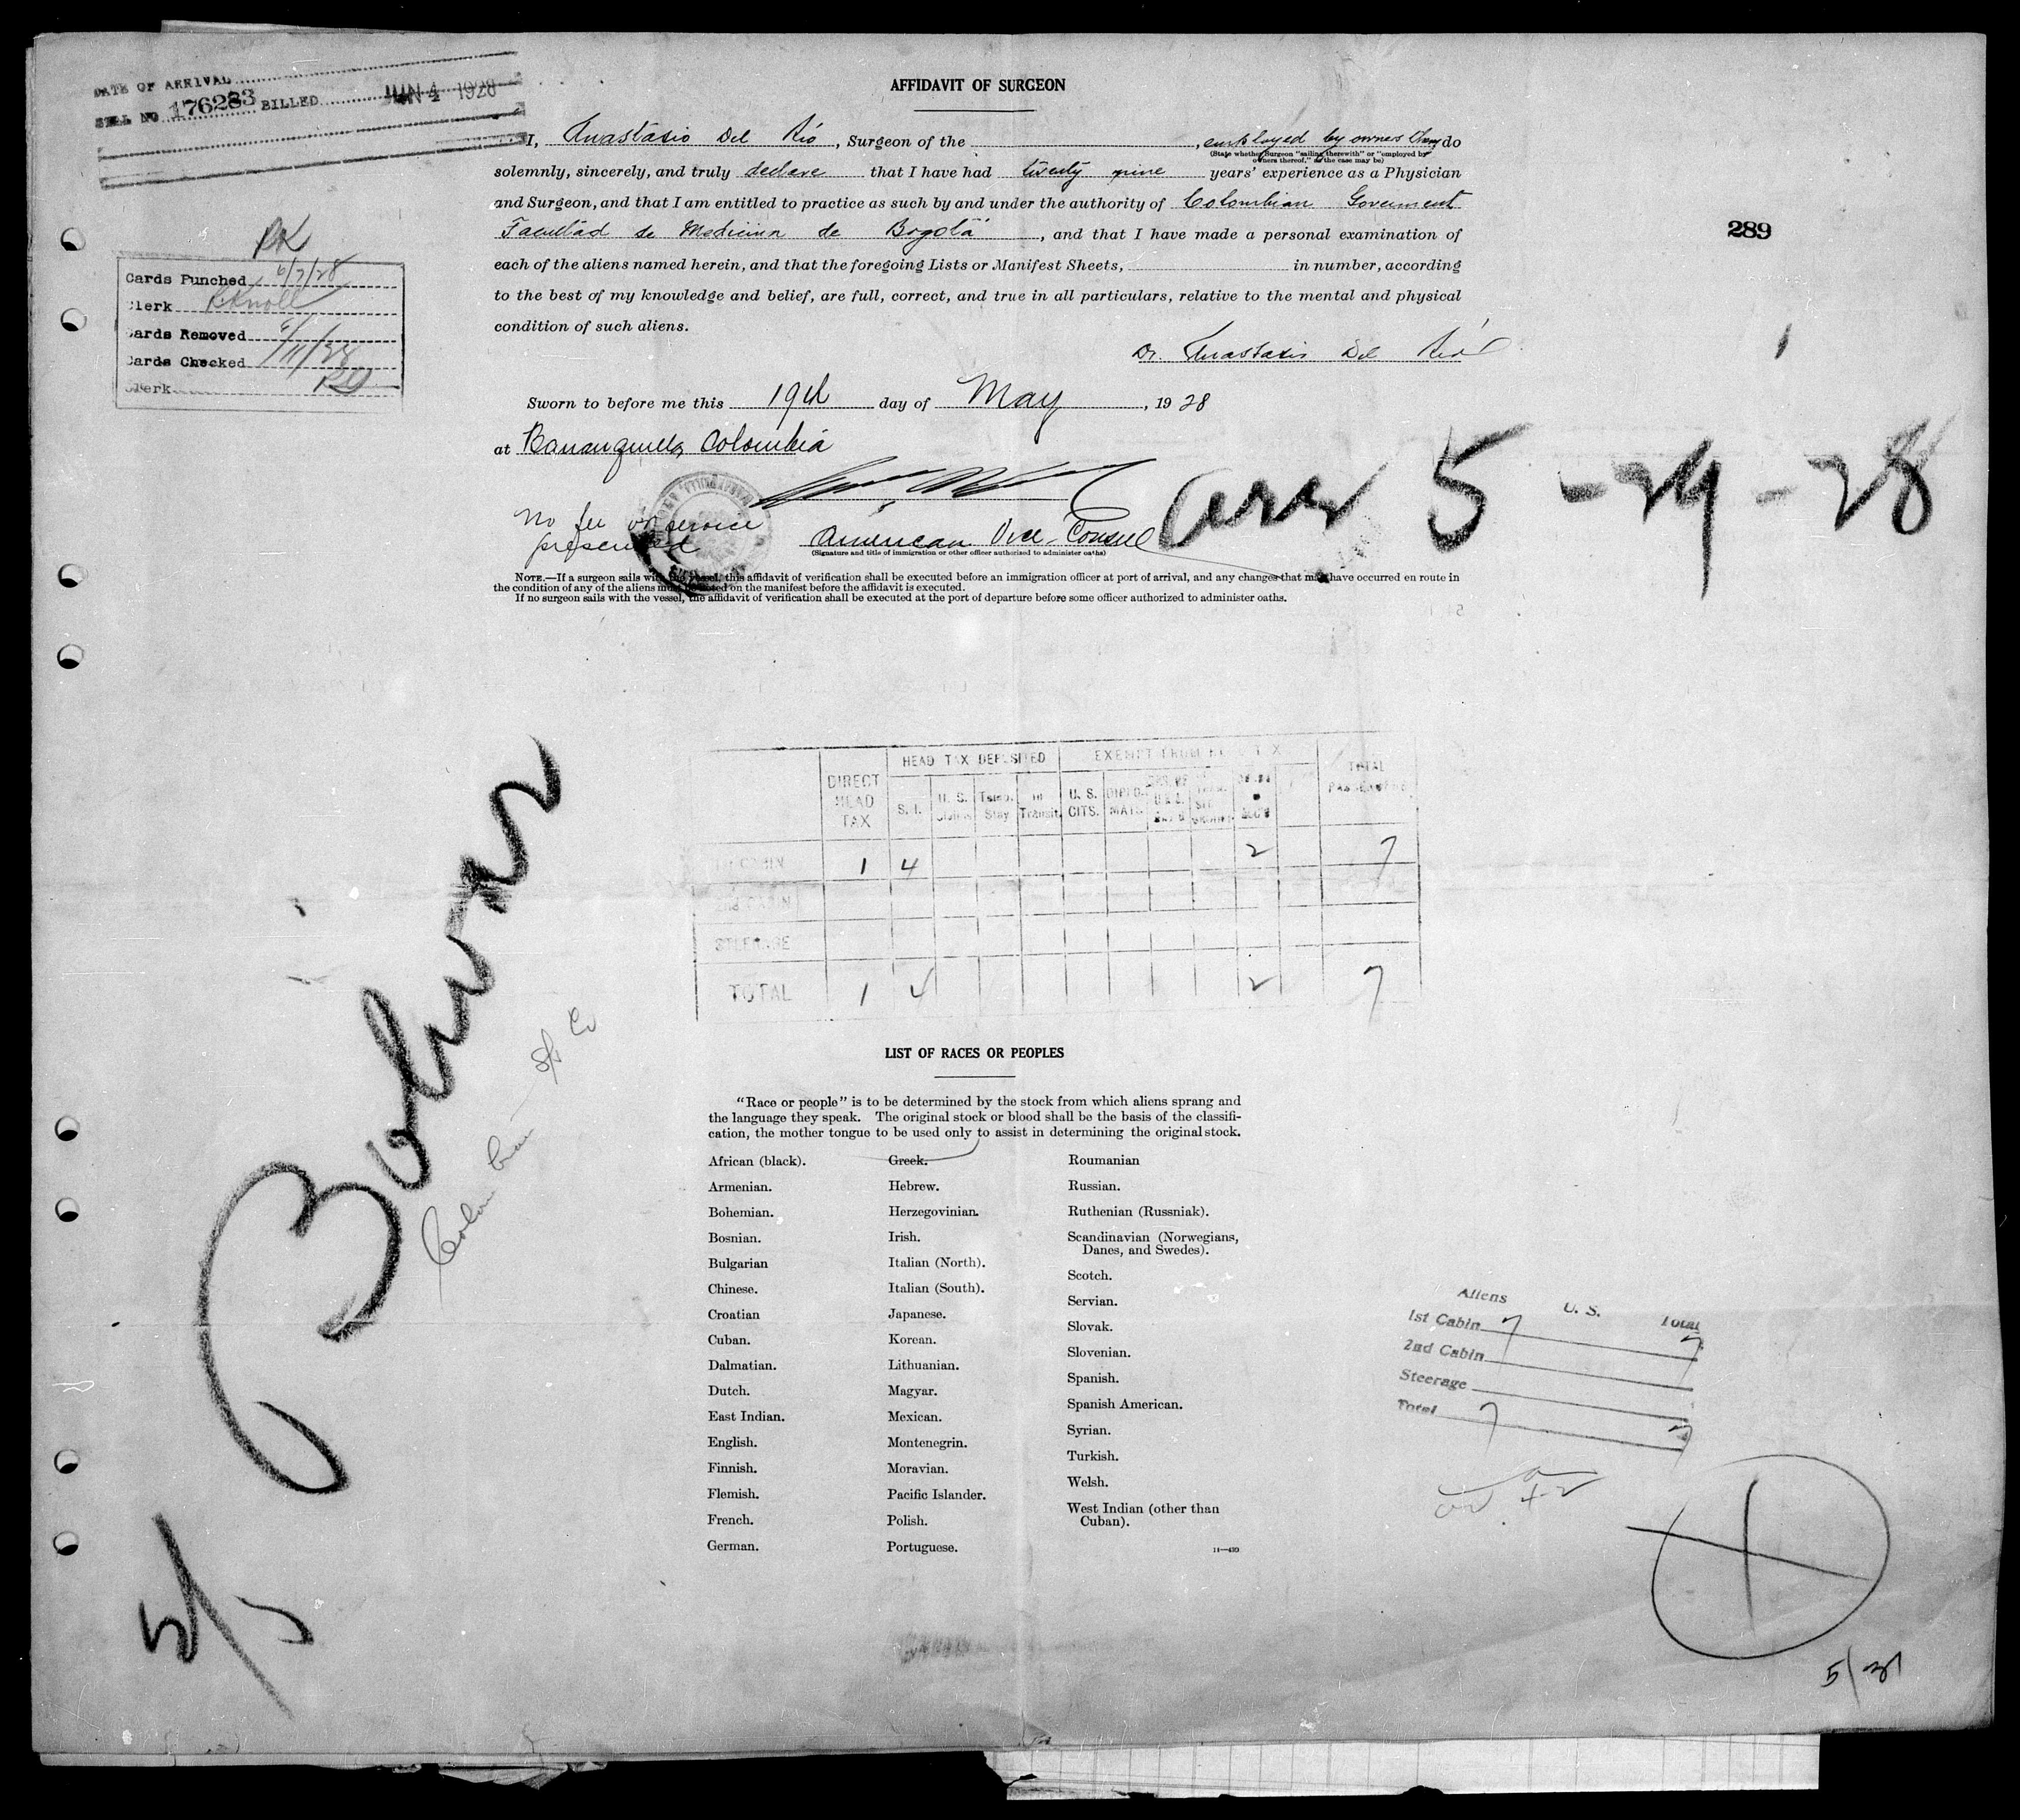 DATE OF ARRIVAL
BILL NO 176283 BILLED JUN 4 1928
AFFIDAVIT OF SURGEON
I, Anastasio Del Rio, Surgeon of the , employed by owners do
(State whether Surgeon "sailing therewith" or "employed by
owners thereof," as the case may be)
solemnly, sincerely, and truly declare that I have had twenty nine years' experience as a Physician
and Surgeon, and that I am entitled to practice as such by and under the authority of Colombian Goverment
Facultad de Medicina de Bogotá, and that I have made a personal examination of
each of the aliens named herein, and that the foregoing Lists or Manifest Sheets, in number, according
to the best of my knowledge and belief, are full, correct, and true in all particulars, relative to the mental and physical
condition of such aliens.
Dr. Anastasio Del Rio
Sworn to before me this 19th day of May, 1928
at Barranquilla, Colombia
No fee or service
presented
American Vice-Consul
(Signature and title of immigration or other officer authorized to administer oaths)
NOTE.—If a surgeon sails with the vessel, this affidavit of verification shall be executed before an immigration officer at port of arrival, and any changes that may have occurred en route in
the condition of any of the aliens must be noted on the manifest before the affidavit is executed.
If no surgeon sails with the vessel, the affidavit of verification shall be executed at the port of departure before some officer authorized to administer oaths.
289
RK
Cards Punched 6/7/28
Clerk RKnoll
Cards Removed
Cards Checked 6/11/28
Clerk
5-29-28
HEAD TAX DEPOSITED EXEMPT FROM HEAD TAX
DIRECT HEAD TAX S. I. U. S. Temp. Stay In Transit U. S. CITS. DIPLOMATS TOTAL PASSENGERS
1 4 2 7
2ND CABIN
STEERAGE
TOTAL 1 4 2 7
S/S Bolivar
Colombian S/S Co
LIST OF RACES OR PEOPLES
"Race or people" is to be determined by the stock from which aliens sprang and
the language they speak. The original stock or blood shall be the basis of the classifi-
cation, the mother tongue to be used only to assist in determining the original stock.
African (black).
Armenian.
Bohemian.
Bosnian.
Bulgarian
Chinese.
Croatian
Cuban.
Dalmatian.
Dutch.
East Indian.
English.
Finnish.
Flemish.
French.
German.
Greek.
Hebrew.
Herzegovinian.
Irish.
Italian (North).
Italian (South).
Japanese.
Korean.
Lithuanian.
Magyar.
Mexican.
Montenegrin.
Moravian.
Pacific Islander.
Polish.
Portuguese.
Roumanian
Russian.
Ruthenian (Russniak).
Scandinavian (Norwegians,
Danes, and Swedes).
Scotch.
Servian.
Slovak.
Slovenian.
Spanish.
Spanish American.
Syrian.
Turkish.
Welsh.
West Indian (other than
Cuban).
Aliens U. S. Total
1st Cabin 7 7
2nd Cabin
Steerage
Total 7 7
5/31